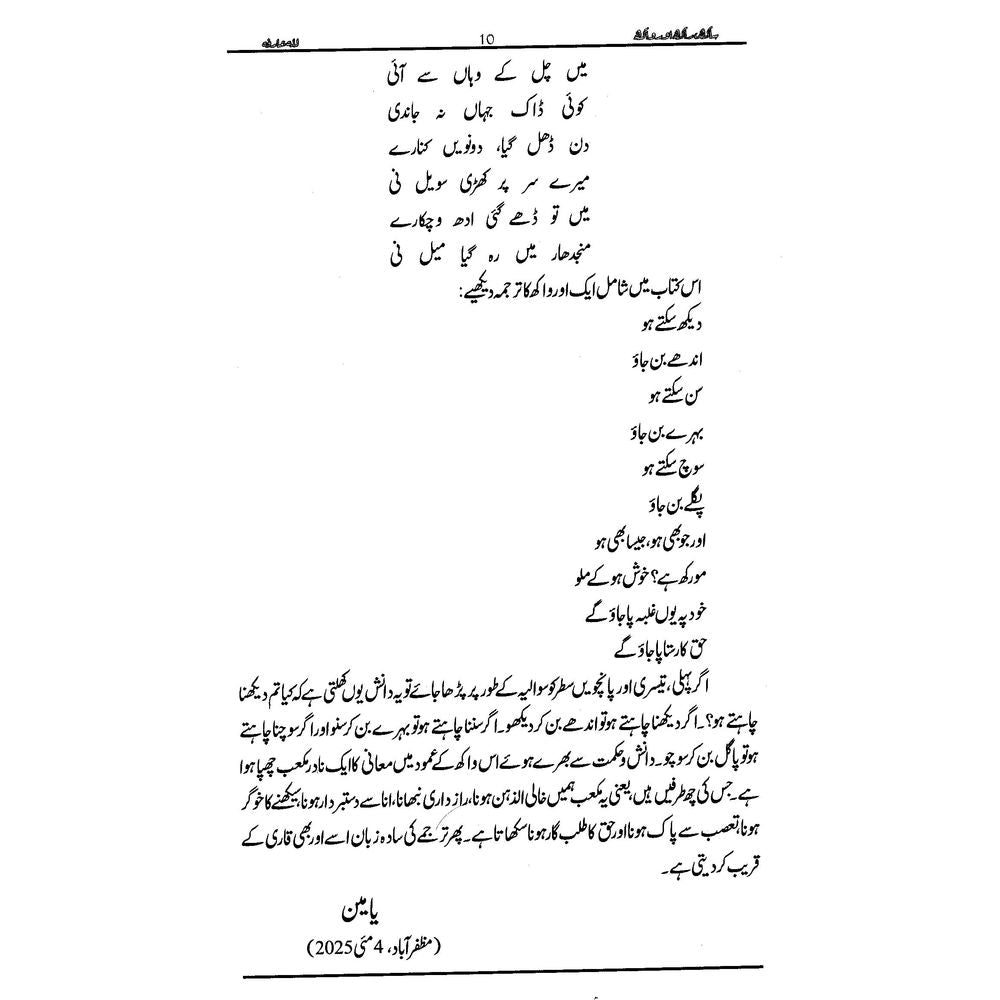 10
میں چل کے وہاں سے آئی
کوئی ڈاک جہاں نہ جاندی
دن ڈھل گیا، دونویں کنارے
میرے سر پر کھڑی سویل نی
میں تو ڈھے گئی ادھ وچکارے
منجدھار میں رہ گیا میل نی
اس کتاب میں شامل ایک اور واکھ کا ترجمہ دیکھیے:
دیکھ سکتے ہو
اندھے بن جاؤ
سن سکتے ہو
بہرے بن جاؤ
سوچ سکتے ہو
پگلے بن جاؤ
اور جو بھی ہو، جیسا بھی ہو
مورکھ ہے؟ خوش ہو کے ملو
خود پہ یوں غلبہ پا جاؤ گے
حق کا رستا پا جاؤ گے
اگر پہلی، تیسری اور پانچویں سطر کو سوالیہ کے طور پر پڑھا جائے تو یہ دانش یوں کھلتی ہے کہ کیا تم دیکھنا
چاہتے ہو؟۔ اگر دیکھنا چاہتے ہو تو اندھے بن کر دیکھو۔ اگر سننا چاہتے ہو تو بہرے بن کر سنو اور اگر سوچنا چاہتے
ہو تو پاگل بن کر سوچو۔ دانش و حکمت سے بھرے ہوئے اس واکھ کے عمود میں معانی کا ایک نادر مکعب چھپا ہوا
ہے۔ جس کی چھ طرفیں ہیں، یعنی یہ مکعب ہمیں خالی الذہن ہونا، رازداری نبھانا، انا سے دستبردار ہونا، سیکھنے کا خوگر
ہونا، تعصب سے پاک ہونا اور حق کا طلب گار ہونا سکھاتا ہے۔ پھر ترجمے کی سادہ زبان اسے اور بھی قاری کے
قریب کر دیتی ہے۔
یامین
(مظفرآباد، 4 مئی 2025)